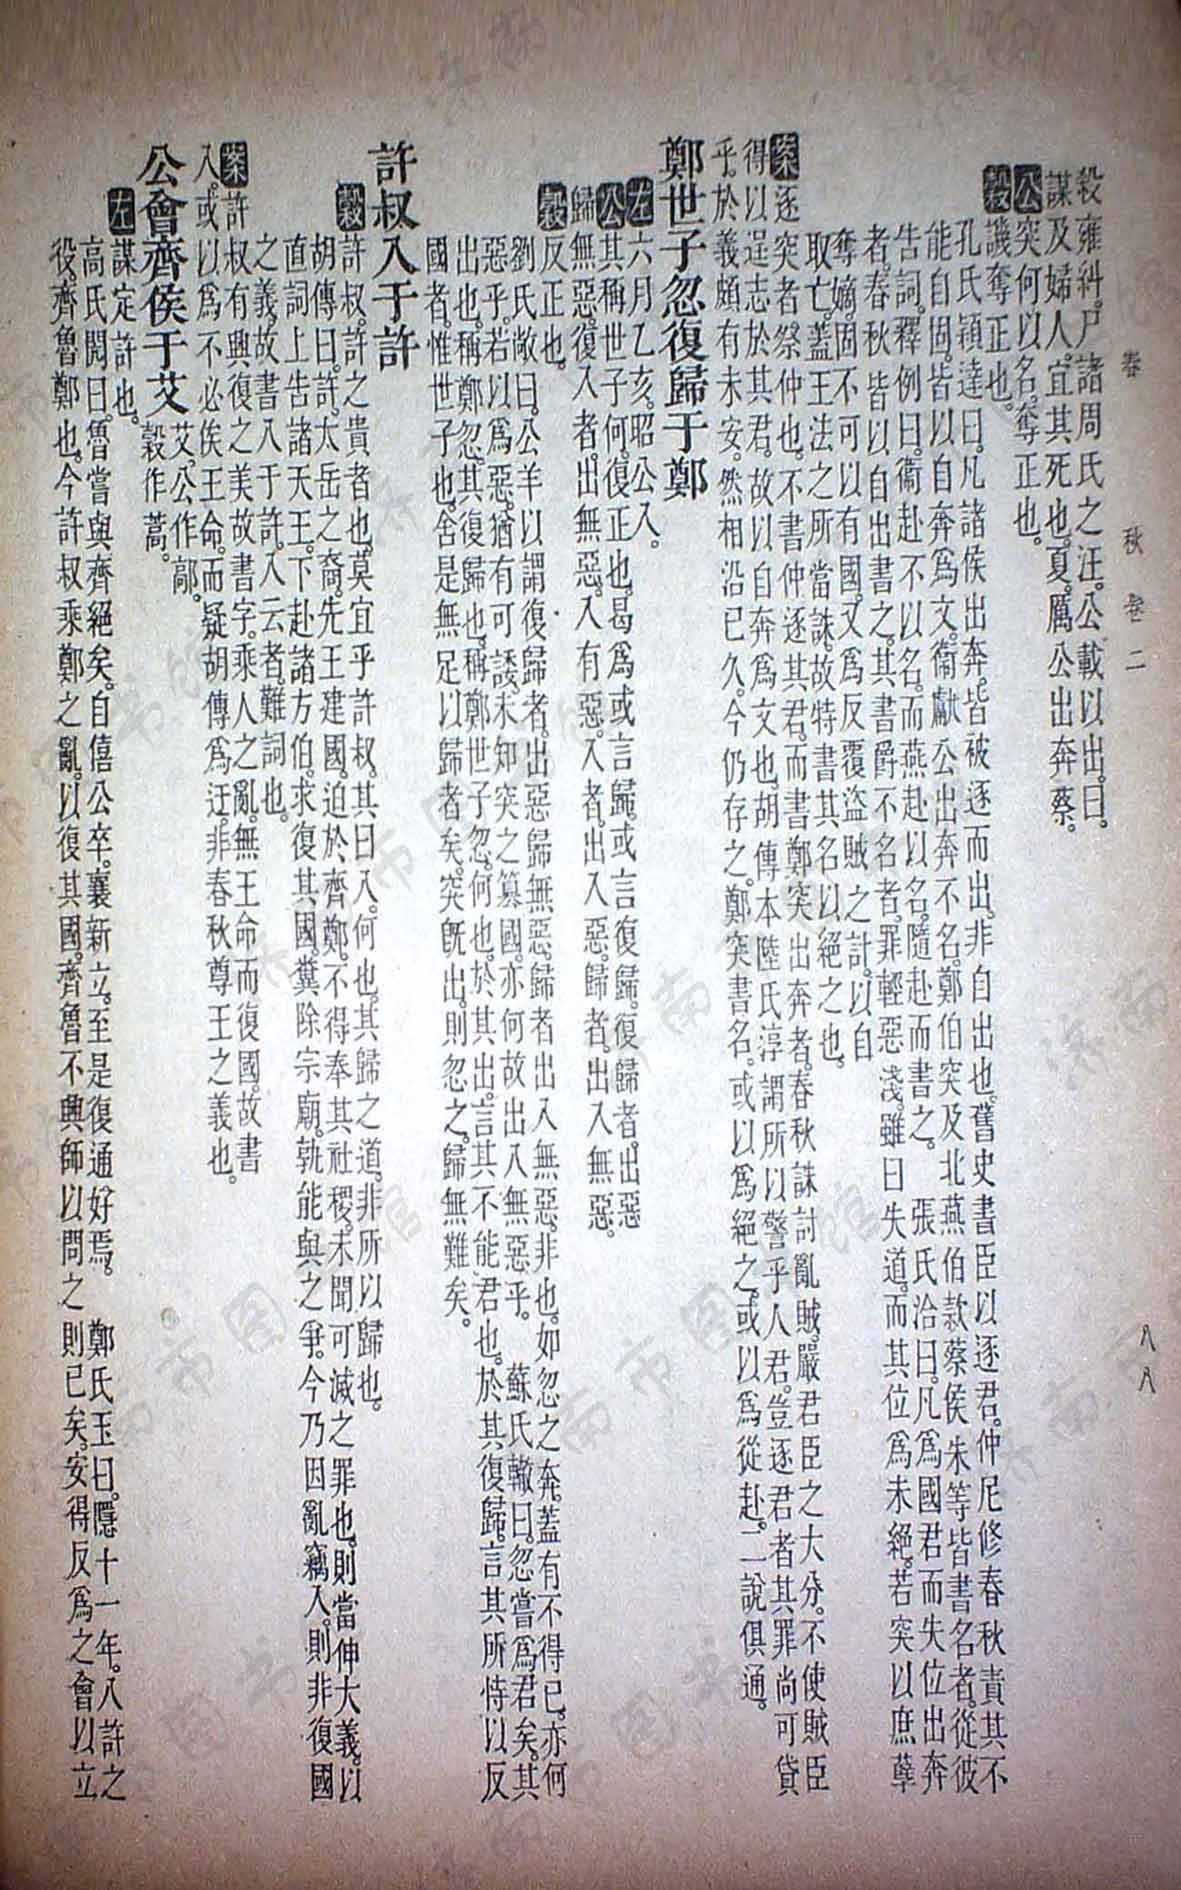 春秋 卷二
八八
殺雍糾。尸諸周氏之汪。公載以出。曰。
謀及婦人。宜其死也。夏。厲公出奔蔡。
公突何以名。奪正也。
穀譏奪正也。
孔氏穎達曰。凡諸侯出奔。皆被逐而出。非自出也。舊史書臣以逐君。仲尼修春秋責其不
能自固。皆以自奔爲文。衞獻公出奔不名。鄭伯突及北燕伯款蔡侯朱等皆書名者。從彼
告詞。釋例曰。衞赴不以名。而燕赴以名。隨赴而書之。 張氏洽曰。凡爲國君而失位出奔
者。春秋皆以自出書之。其書爵不名者。罪輕惡淺。雖曰失道。而其位爲未絕。若突以庶孽
奪嫡。固不可以有國。又爲反覆盜賊之計。以自
取亡。蓋王法之所當誅。故特書其名以絕之也。
案逐突者祭仲也。不書仲逐其君。而書鄭突出奔者。春秋誅討亂賊。嚴君臣之大分。不使賊臣
得以逞志於其君。故以自奔爲文也。胡傳本陸氏淳謂所以警乎人君。豈逐君者其罪尚可貸
乎。於義頗有未安。然相沿已久。今仍存之。鄭突書名。或以爲絕之。或以爲從赴。二說俱通。
鄭世子忽復歸于鄭
左六月乙亥。昭公入。
公其稱世子何。復正也。曷爲或言歸。或言復歸。復歸者。出惡
歸無惡。復入者。出無惡。入有惡。入者。出入惡。歸者。出入無惡。
穀反正也。
劉氏敞曰。公羊以謂復歸者。出惡歸無惡。歸者出入無惡。非也。如忽之奔。蓋有不得已。亦何
惡乎。若以爲惡。猶有可諉。未知突之篡國。亦何故出入無惡乎。 蘇氏轍曰。忽嘗爲君矣。其
出也。稱鄭忽。其復歸也。稱鄭世子忽。何也。於其出。言其不能君也。於其復歸。言其所恃以反
國者。惟世子也。舍是無足以歸者矣。突旣出。則忽之歸無難矣。
許叔入于許
穀許叔。許之貴者也。莫宜乎許叔。其曰入。何也。其歸之道。非所以歸也。
胡傳曰。許。太岳之裔。先王建國。迫於齊鄭。不得奉其社稷。未聞可滅之罪也。則當伸大義。以
直詞上告諸天王。下赴諸方伯。求復其國。糞除宗廟。孰能與之爭。今乃因亂竊入。則非復國
之義。故書入于許。入云者。難詞也。
案許叔有興復之美故書字。乘人之亂。無王命而復國。故書
入。或以爲不必俟王命。而疑胡傳爲迂。非春秋尊王之義也。
公會齊侯于艾 艾。公作鄗。
穀作蒿。
左謀定許也。
高氏閌曰。魯嘗與齊絕矣。自僖公卒。襄新立。至是復通好焉。 鄭氏玉曰。隱十一年。入許之
役。齊魯鄭也。今許叔乘鄭之亂。以復其國。齊魯不興師以問之則已矣。安得反爲之會以立